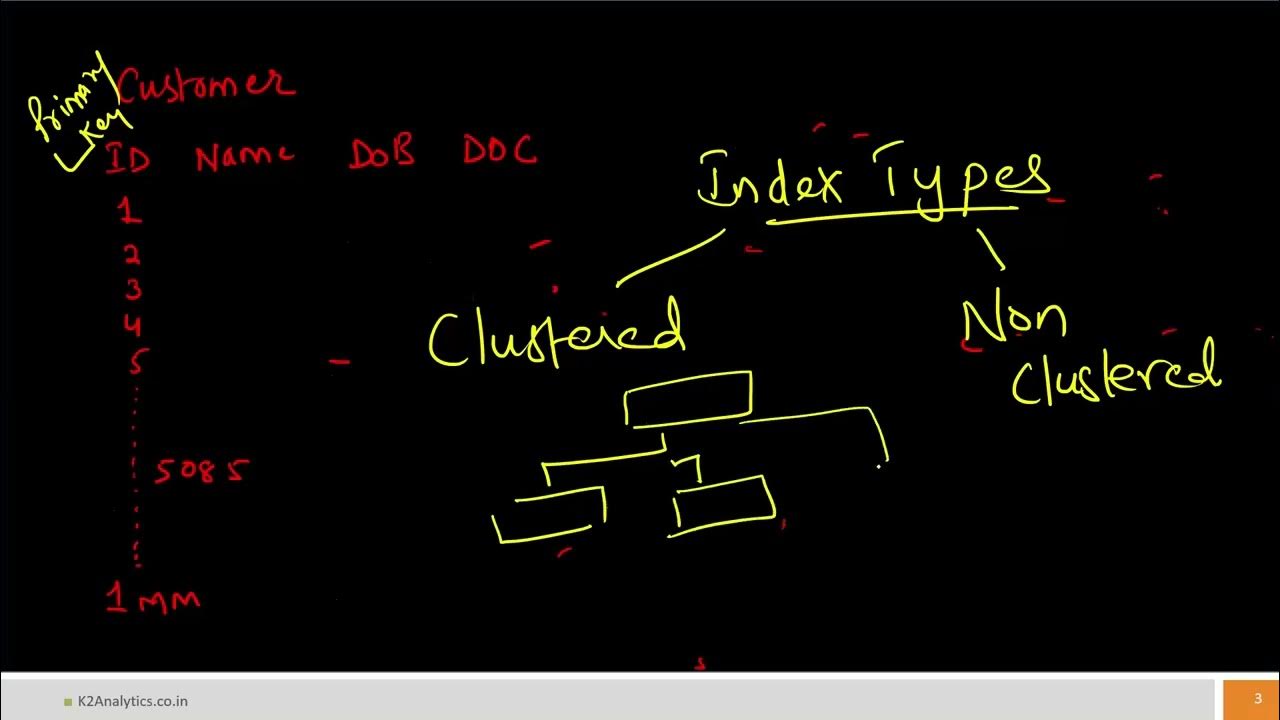 Primary
Key
Customer
ID Name DOB DOC
1
2
3
4
5
5085
1 MM
Index Types
Clustered
Non
Clustered
K2Analytics.co.in
3